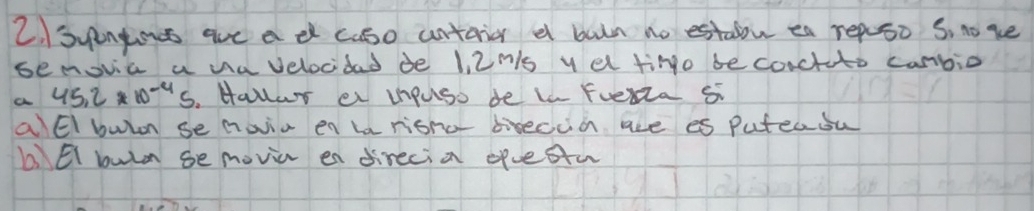 2.) Supongamos que e el caso anterior el balon no estaba en reposo Sino que
se movia a una velocidad de 1,2 m/s y el timpo de contacto cambio
a 45,2 * 10⁻⁴ s. Hallar el impulso de la Fuerza si
a) El balon se movia en la misma direccion que es Pateada
b) El balon se movia en direcion opuesta